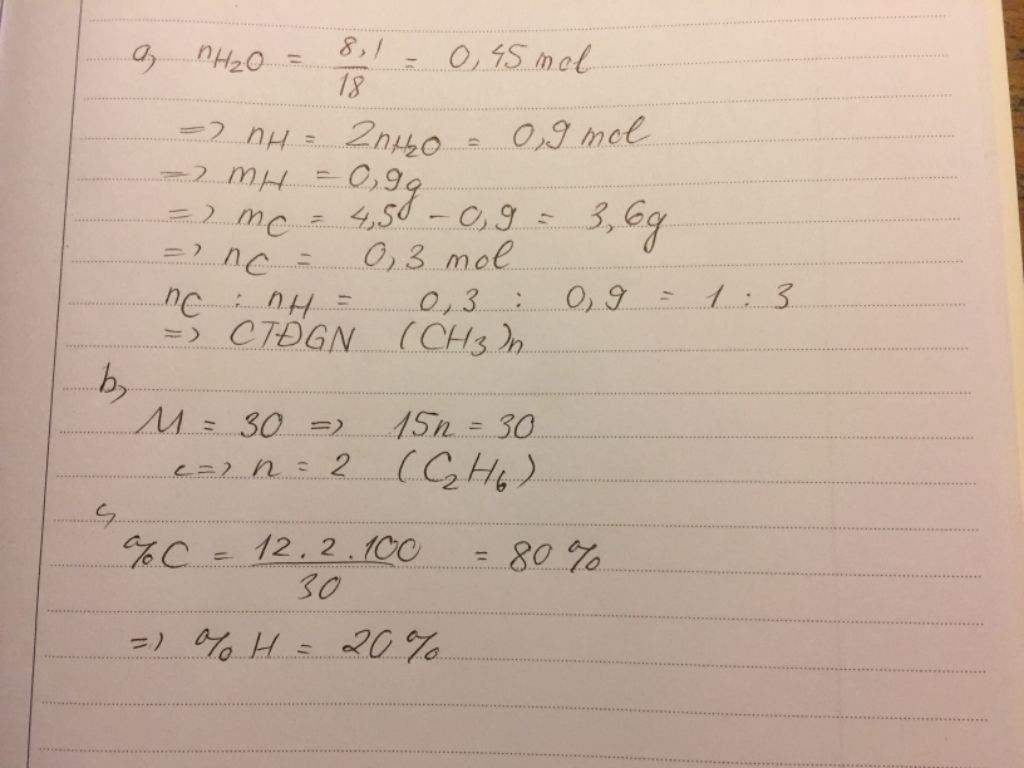 a, nH2O = 8,1/18 = 0,45 mol
=> nH = 2nH2O = 0,9 mol
=> mH = 0,9g
=> mC = 4,5 - 0,9 = 3,6g
=> nC = 0,3 mol
nC : nH = 0,3 : 0,9 = 1 : 3
=> CTĐGN (CH3)n
b,
M = 30 => 15n = 30
<=> n = 2 (C2H6)
c,
%C = 12.2.100/30 = 80%
=> %H = 20%